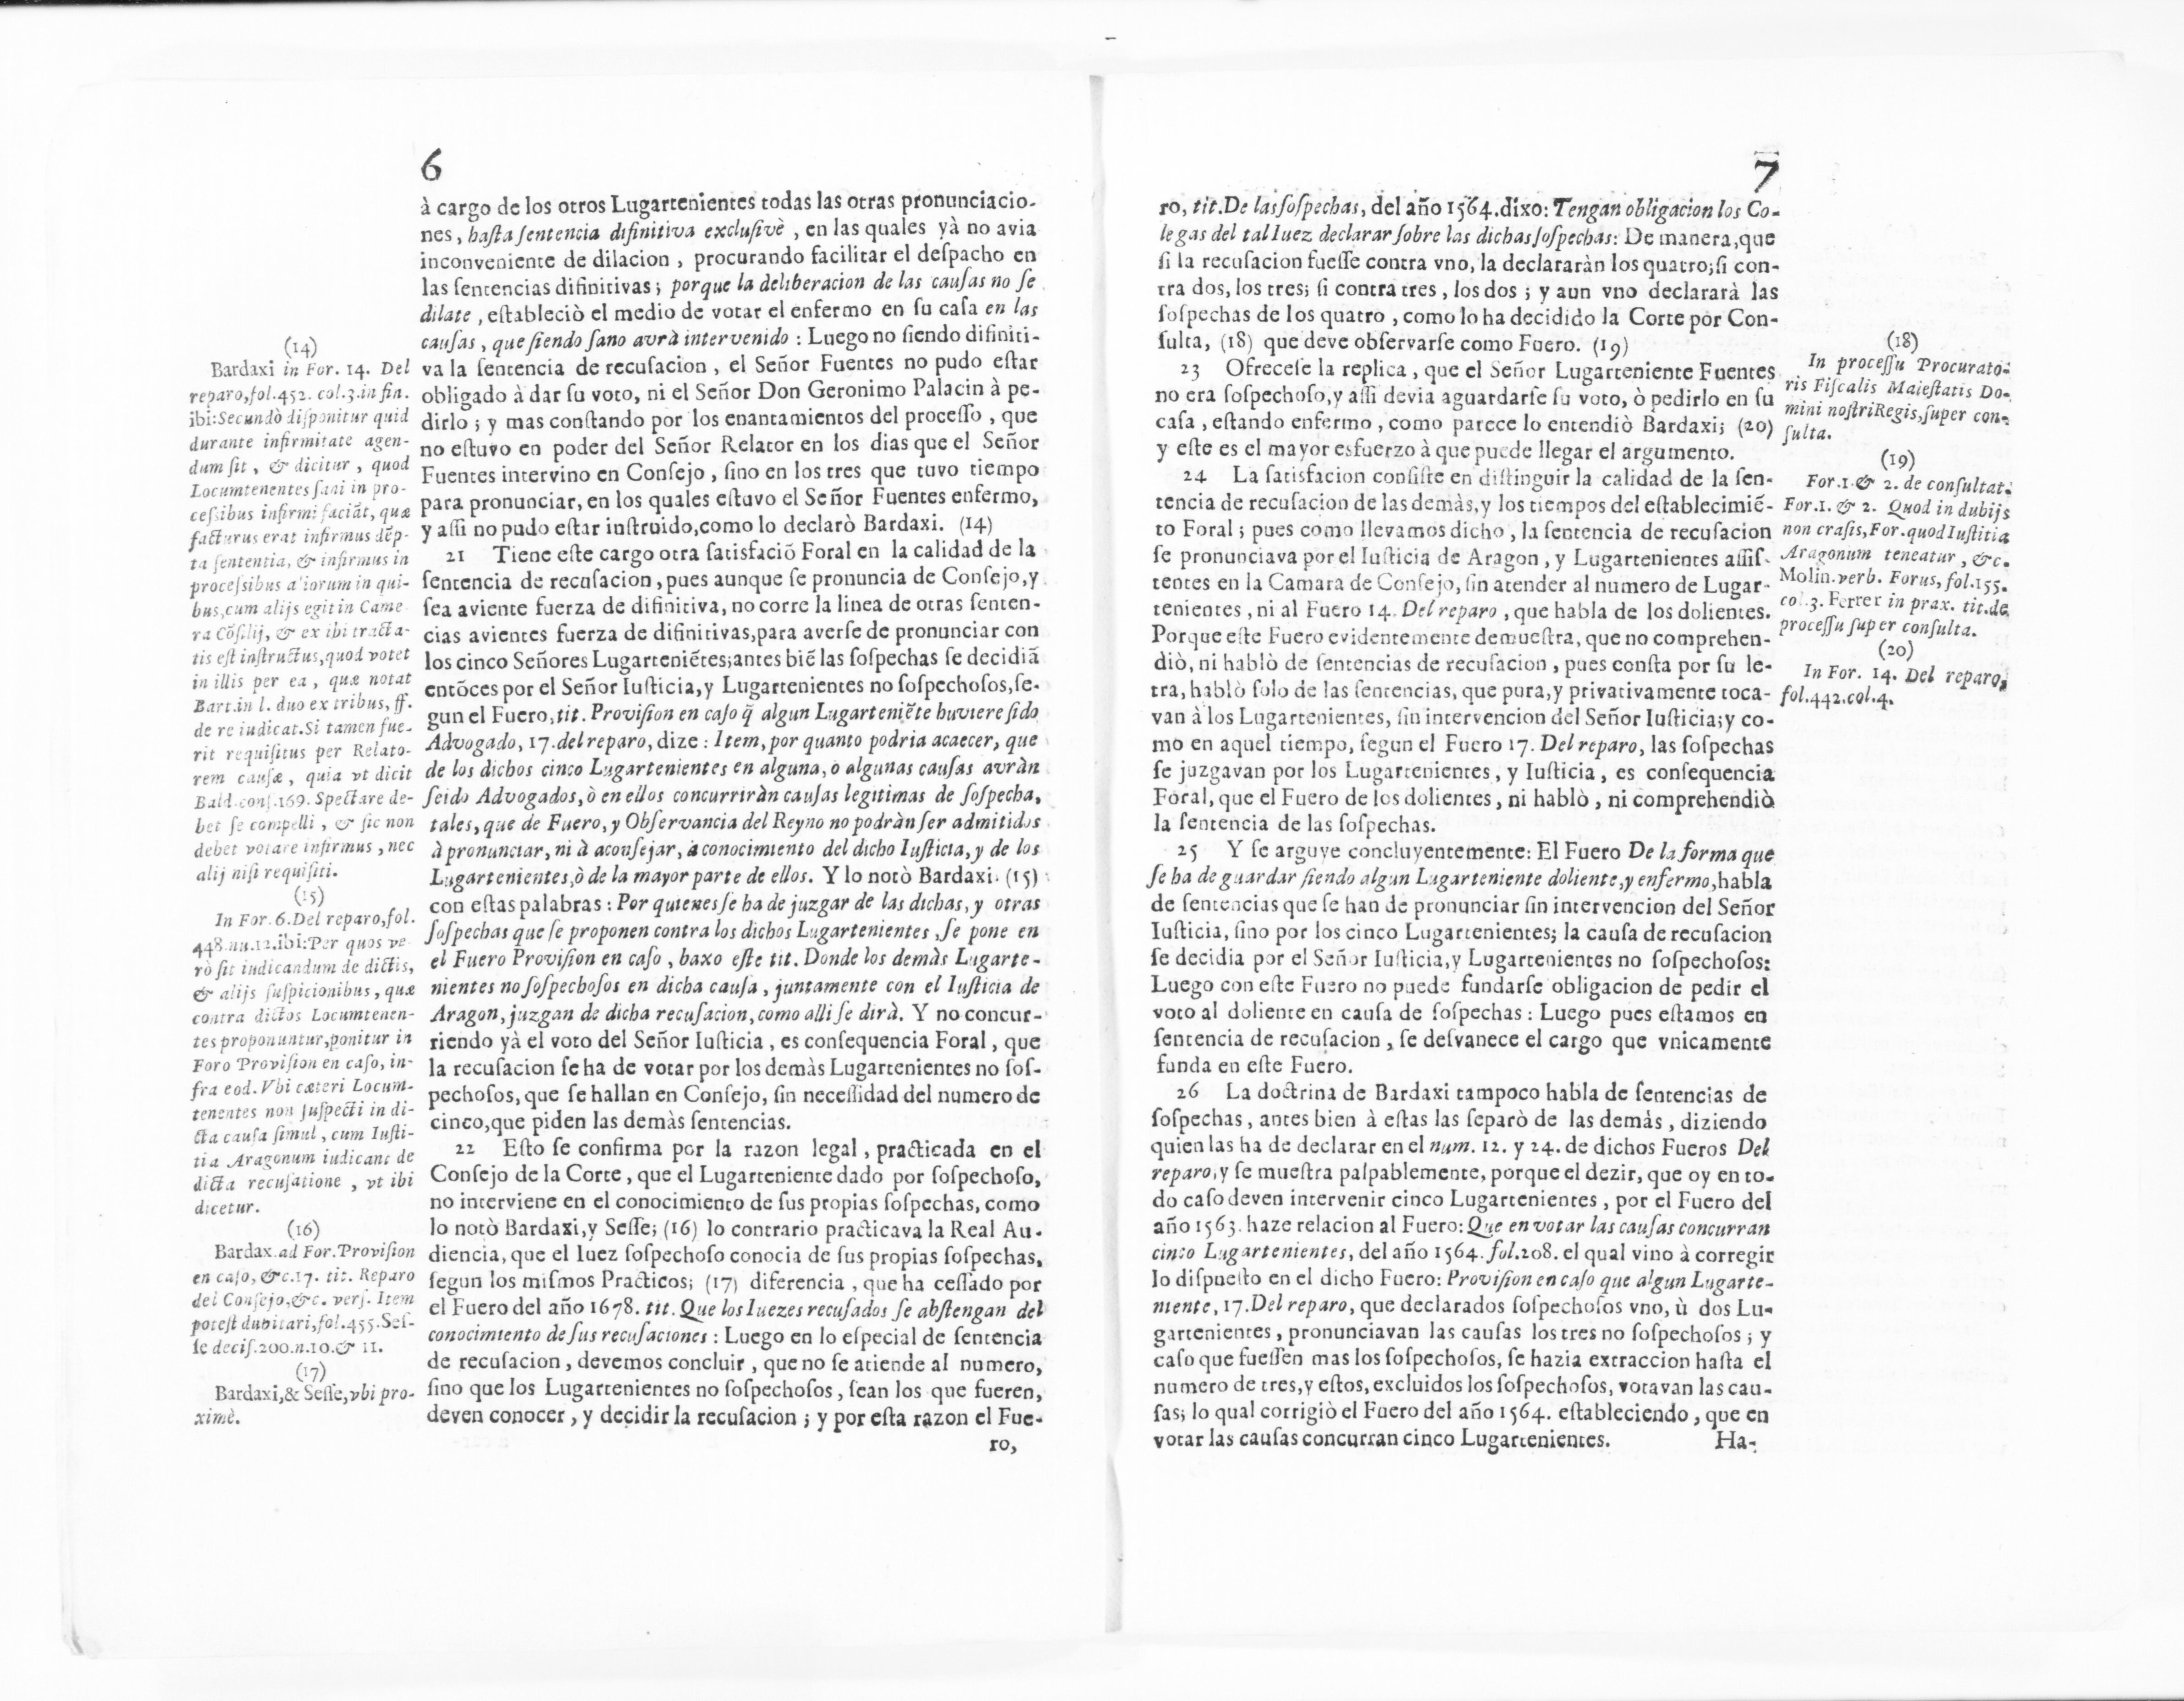 6
à cargo de los otros Lugartenientes todas las otras pronunciacio-
nes, haſta ſentencia difinitiva excluſivè, en las quales yà no avia
inconveniente de dilacion, procurando facilitar el deſpacho en
las ſentencias difinitivas; porque la deliberacion de las cauſas no ſe
dilate, eſtableciò el medio de votar el enfermo en ſu caſa en las
cauſas, que ſiendo ſano avrà intervenido: Luego no ſiendo difiniti-
va la ſentencia de recuſacion, el Señor Fuentes no pudo eſtar
obligado à dar ſu voto, ni el Señor Don Geronimo Palacin à pe-
dirlo; y mas conſtando por los enantamientos del proceſſo, que
no eſtuvo en poder del Señor Relator en los dias que el Señor
Fuentes intervino en Conſejo, ſino en los tres que tuvo tiempo
para pronunciar, en los quales eſtuvo el Señor Fuentes enfermo,
y aſſi no pudo eſtar inſtruido, como lo declarò Bardaxi. (14)
21 Tiene eſte cargo otra ſatisfaciõ Foral en la calidad de la
ſentencia de recuſacion, pues aunque ſe pronuncia de Conſejo, y
ſea aviente fuerza de difinitiva, no corre la linea de otras ſenten-
cias avientes fuerza de difinitivas, para averſe de pronunciar con
los cinco Señores Lugarteniẽtes; antes biẽ las ſoſpechas ſe decidiã
entõces por el Señor Iuſticia, y Lugartenientes no ſoſpechoſos, ſe-
gun el Fuero, tit. Proviſion en caſo q̃ algun Lugarteniẽte huviere ſido
Advogado, 17. del reparo, dize: Item, por quanto podria acaecer, que
de los dichos cinco Lugartenientes en alguna, o algunas cauſas avràn
ſeido Advogados, ò en ellos concurriràn cauſas legitimas de ſoſpecha,
tales, que de Fuero, y Obſervancia del Reyno no podràn ſer admitidos
à pronunciar, ni à aconſejar, à conocimiento del dicho Iuſticia, y de los
Lugartenientes, ò de la mayor parte de ellos. Y lo notò Bardaxi. (15)
con eſtas palabras: Por quienes ſe ha de juzgar de las dichas, y otras
ſoſpechas que ſe proponen contra los dichos Lugartenientes, ſe pone en
el Fuero Proviſion en caſo, baxo eſte tit. Donde los demàs Lugarte-
nientes no ſoſpechoſos en dicha cauſa, juntamente con el Iuſticia de
Aragon, juzgan de dicha recuſacion, como alli ſe dirà. Y no concur-
riendo yà el voto del Señor Iuſticia, es conſequencia Foral, que
la recuſacion ſe ha de votar por los demàs Lugartenientes no ſoſ-
pechoſos, que ſe hallan en Conſejo, ſin neceſſidad del numero de
cinco, que piden las demàs ſentencias.
22 Eſto ſe confirma por la razon legal, practicada en el
Conſejo de la Corte, que el Lugarteniente dado por ſoſpechoſo,
no interviene en el conocimiento de ſus propias ſoſpechas, como
lo notò Bardaxi, y Seſſe; (16) lo contrario practicava la Real Au-
diencia, que el Iuez ſoſpechoſo conocia de ſus propias ſoſpechas,
ſegun los miſmos Practicos; (17) diferencia, que ha ceſſado por
el Fuero del año 1678. tit. Que los Iuezes recuſados ſe abſtengan del
conocimiento de ſus recuſaciones: Luego en lo eſpecial de ſentencia
de recuſacion, devemos concluir, que no ſe atiende al numero,
ſino que los Lugartenientes no ſoſpechoſos, ſean los que fueren,
deven conocer, y decidir la recuſacion; y por eſta razon el Fue-
ro,
(14)
Bardaxi in For. 14. Del
reparo, fol. 452. col. 3. in fin.
ibi: Secundò diſponitur quid
durante infirmitate agen-
dum ſit, & dicitur, quod
Locumtenentes ſani in pro-
ceſsibus infirmi faciãt, quæ
facturus erat infirmus dẽp-
ta ſententia, & infirmus in
proceſsibus aliorum in qui-
bus, cum alijs egit in Came
ra Cõſilij, & ex ibi tracta-
tis eſt inſtructus, quod votet
in illis per ea, quæ notat
Bart. in l. duo ex tribus, ff.
de re iudicat. Si tamen fue-
rit requiſitus per Relato-
rem cauſæ, quia vt dicit
Bald. conſ. 169. Spectare de-
bet ſe compelli, & ſic non
debet votare infirmus, nec
alij niſi requiſiti.
(15)
In For. 6. Del reparo, fol.
448. nu. 12. ibi: Per quos ve
rò ſit iudicandum de dictis,
& alijs ſuſpicionibus, quæ
contra dictos Locumtenen-
tes proponuntur, ponitur in
Foro Proviſion en caſo, in-
fra eod. Vbi cæteri Locum-
tenentes non ſuſpecti in di-
cta cauſa ſimul, cum Iuſti-
tia Aragonum iudicant de
dicta recuſatione, vt ibi
dicetur.
(16)
Bardax. ad For. Proviſion
en caſo, &c. 17. tit. Reparo
del Conſejo, &c. verſ. Item
poteſt dubitari, fol. 455. Seſ-
ſe deciſ. 200. n. 10. & 11.
(17)
Bardaxi, & Seſſe, vbi pro-
ximè.
7
ro, tit. De las ſoſpechas, del año 1564. dixo: Tengan obligacion los Co-
legas del tal Iuez declarar ſobre las dichas ſoſpechas: De manera, que
ſi la recuſacion fueſſe contra vno, la declararàn los quatro; ſi con-
tra dos, los tres; ſi contra tres, los dos; y aun vno declararà las
ſoſpechas de los quatro, como lo ha decidido la Corte por Con-
ſulta, (18) que deve obſervarſe como Fuero. (19)
23 Ofreceſe la replica, que el Señor Lugarteniente Fuentes
no era ſoſpechoſo, y aſſi devia aguardarſe ſu voto, ò pedirlo en ſu
caſa, eſtando enfermo, como parece lo entendiò Bardaxi; (20)
y eſte es el mayor esfuerzo à que puede llegar el argumento.
24 La ſatisfacion conſiſte en diſtinguir la calidad de la ſen-
tencia de recuſacion de las demàs, y los tiempos del eſtablecimiẽ-
to Foral; pues como llevamos dicho, la ſentencia de recuſacion
ſe pronunciava por el Iuſticia de Aragon, y Lugartenientes aſſiſ-
tentes en la Camara de Conſejo, ſin atender al numero de Lugar-
tenientes, ni al Fuero 14. Del reparo, que habla de los dolientes.
Porque eſte Fuero evidentemente demueſtra, que no comprehen-
diò, ni hablò de ſentencias de recuſacion, pues conſta por ſu le-
tra, hablò ſolo de las ſentencias, que pura, y privativamente toca-
van à los Lugartenientes, ſin intervencion del Señor Iuſticia; y co-
mo en aquel tiempo, ſegun el Fuero 17. Del reparo, las ſoſpechas
ſe juzgavan por los Lugartenientes, y Iuſticia, es conſequencia
Foral, que el Fuero de los dolientes, ni hablò, ni comprehendiò
la ſentencia de las ſoſpechas.
25 Y ſe arguye concluyentemente: El Fuero De la forma que
ſe ha de guardar ſiendo algun Lugarteniente doliente, y enfermo, habla
de ſentencias que ſe han de pronunciar ſin intervencion del Señor
Iuſticia, ſino por los cinco Lugartenientes; la cauſa de recuſacion
ſe decidia por el Señor Iuſticia, y Lugartenientes no ſoſpechoſos:
Luego con eſte Fuero no puede fundarſe obligacion de pedir el
voto al doliente en cauſa de ſoſpechas: Luego pues eſtamos en
ſentencia de recuſacion, ſe deſvanece el cargo que vnicamente
funda en eſte Fuero.
26 La doctrina de Bardaxi tampoco habla de ſentencias de
ſoſpechas, antes bien à eſtas las ſeparò de las demàs, diziendo
quien las ha de declarar en el num. 12. y 24. de dichos Fueros Del
reparo, y ſe mueſtra palpablemente, porque el dezir, que oy en to-
do caſo deven intervenir cinco Lugartenientes, por el Fuero del
año 1563. haze relacion al Fuero: Que en votar las cauſas concurran
cinco Lugartenientes, del año 1564. fol. 208. el qual vino à corregir
lo diſpueſto en el dicho Fuero: Proviſion en caſo que algun Lugarte-
niente, 17. Del reparo, que declarados ſoſpechoſos vno, ù dos Lu-
gartenientes, pronunciavan las cauſas los tres no ſoſpechoſos; y
caſo que fueſſen mas los ſoſpechoſos, ſe hazia extraccion haſta el
numero de tres, y eſtos, excluidos los ſoſpechoſos, votavan las cau-
ſas; lo qual corrigiò el Fuero del año 1564. eſtableciendo, que en
votar las cauſas concurran cinco Lugartenientes.
Ha-
(18)
In proceſſu Procurato-
ris Fiſcalis Maieſtatis Do-
mini noſtri Regis, ſuper con-
ſulta.
(19)
For. 1. & 2. de conſultat.
For. 1. & 2. Quod in dubijs
non craſis, For. quod Iuſtitia
Aragonum teneatur, &c.
Molin. verb. Forus, fol. 155.
col. 3. Ferrer in prax. tit. de
proceſſu ſuper conſulta.
(20)
In For. 14. Del reparo,
fol. 442. col. 4.